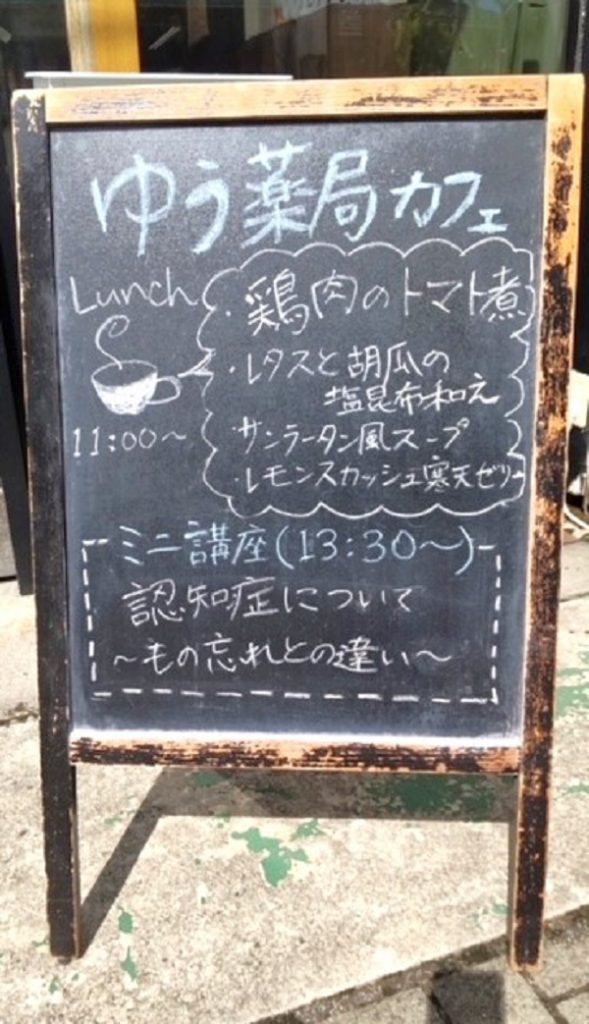 ゆう薬局カフェ
Lunch
11:00～
・鶏肉のトマト煮
・レタスと胡瓜の
塩昆布和え
・サンラータン風スープ
・レモンスカッシュ寒天ゼリー
ミニ講座(13:30～)
認知症について
～もの忘れとの違い～